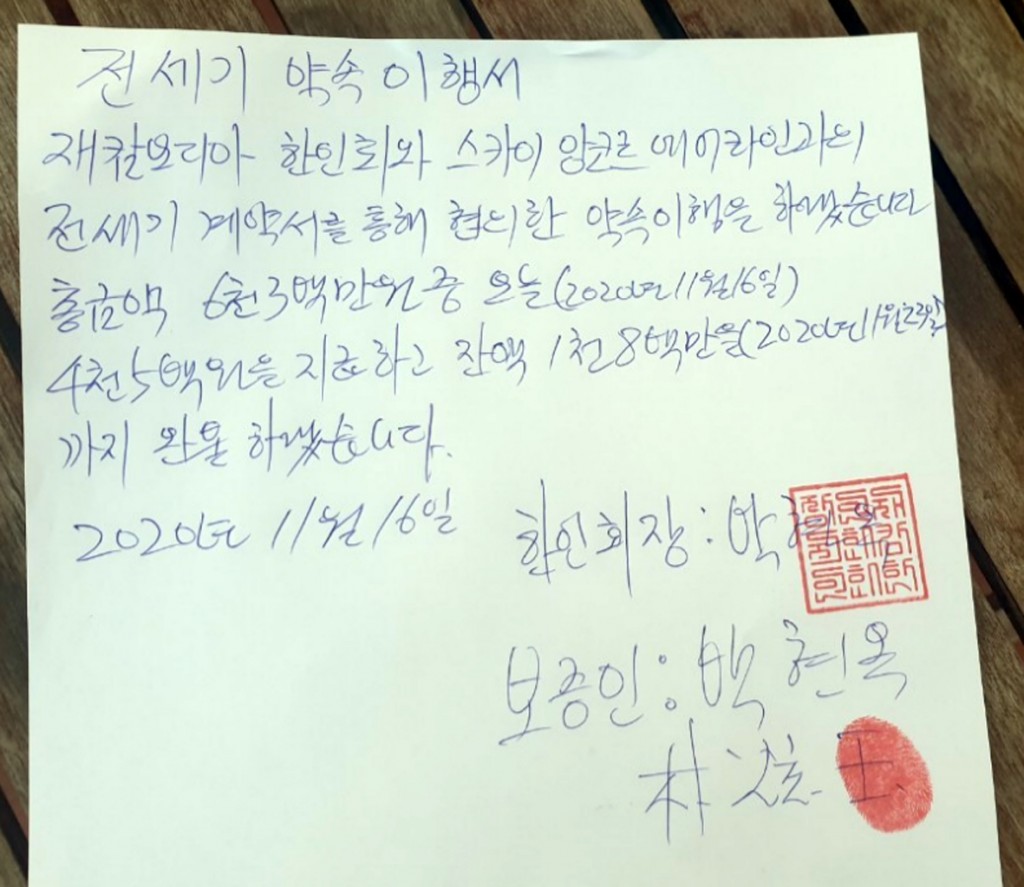 전세기 약속 이행서
재캄보디아 한인회와 스카이 앙코르 에어라인과의
전세기 계약서를 통해 협의한 약속이행을 하겠습니다
총금액 6천3백만원중 오늘(2020년11월16일)
4천5백원을 지급하고 잔액 1천8백만을(2020년11월23일)
까지 완불 하겠습니다.
2020년 11월 16일
한인회장: 박현옥
보증인: 박현옥
朴 玉